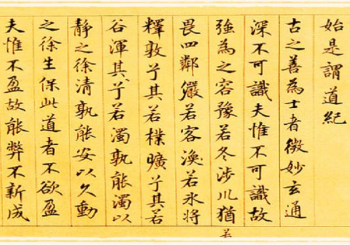 始是謂道紀
古之善為士者微妙玄通
深不可識夫惟不可識故
強為之容豫若冬涉川猶若
畏四鄰儼若客渙若氷將
釋敦兮其若樸曠兮其若
谷渾其兮若濁孰能濁以
靜之徐清孰能安以久動
之徐生保此道者不欲盈
夫惟不盈故能弊不新成